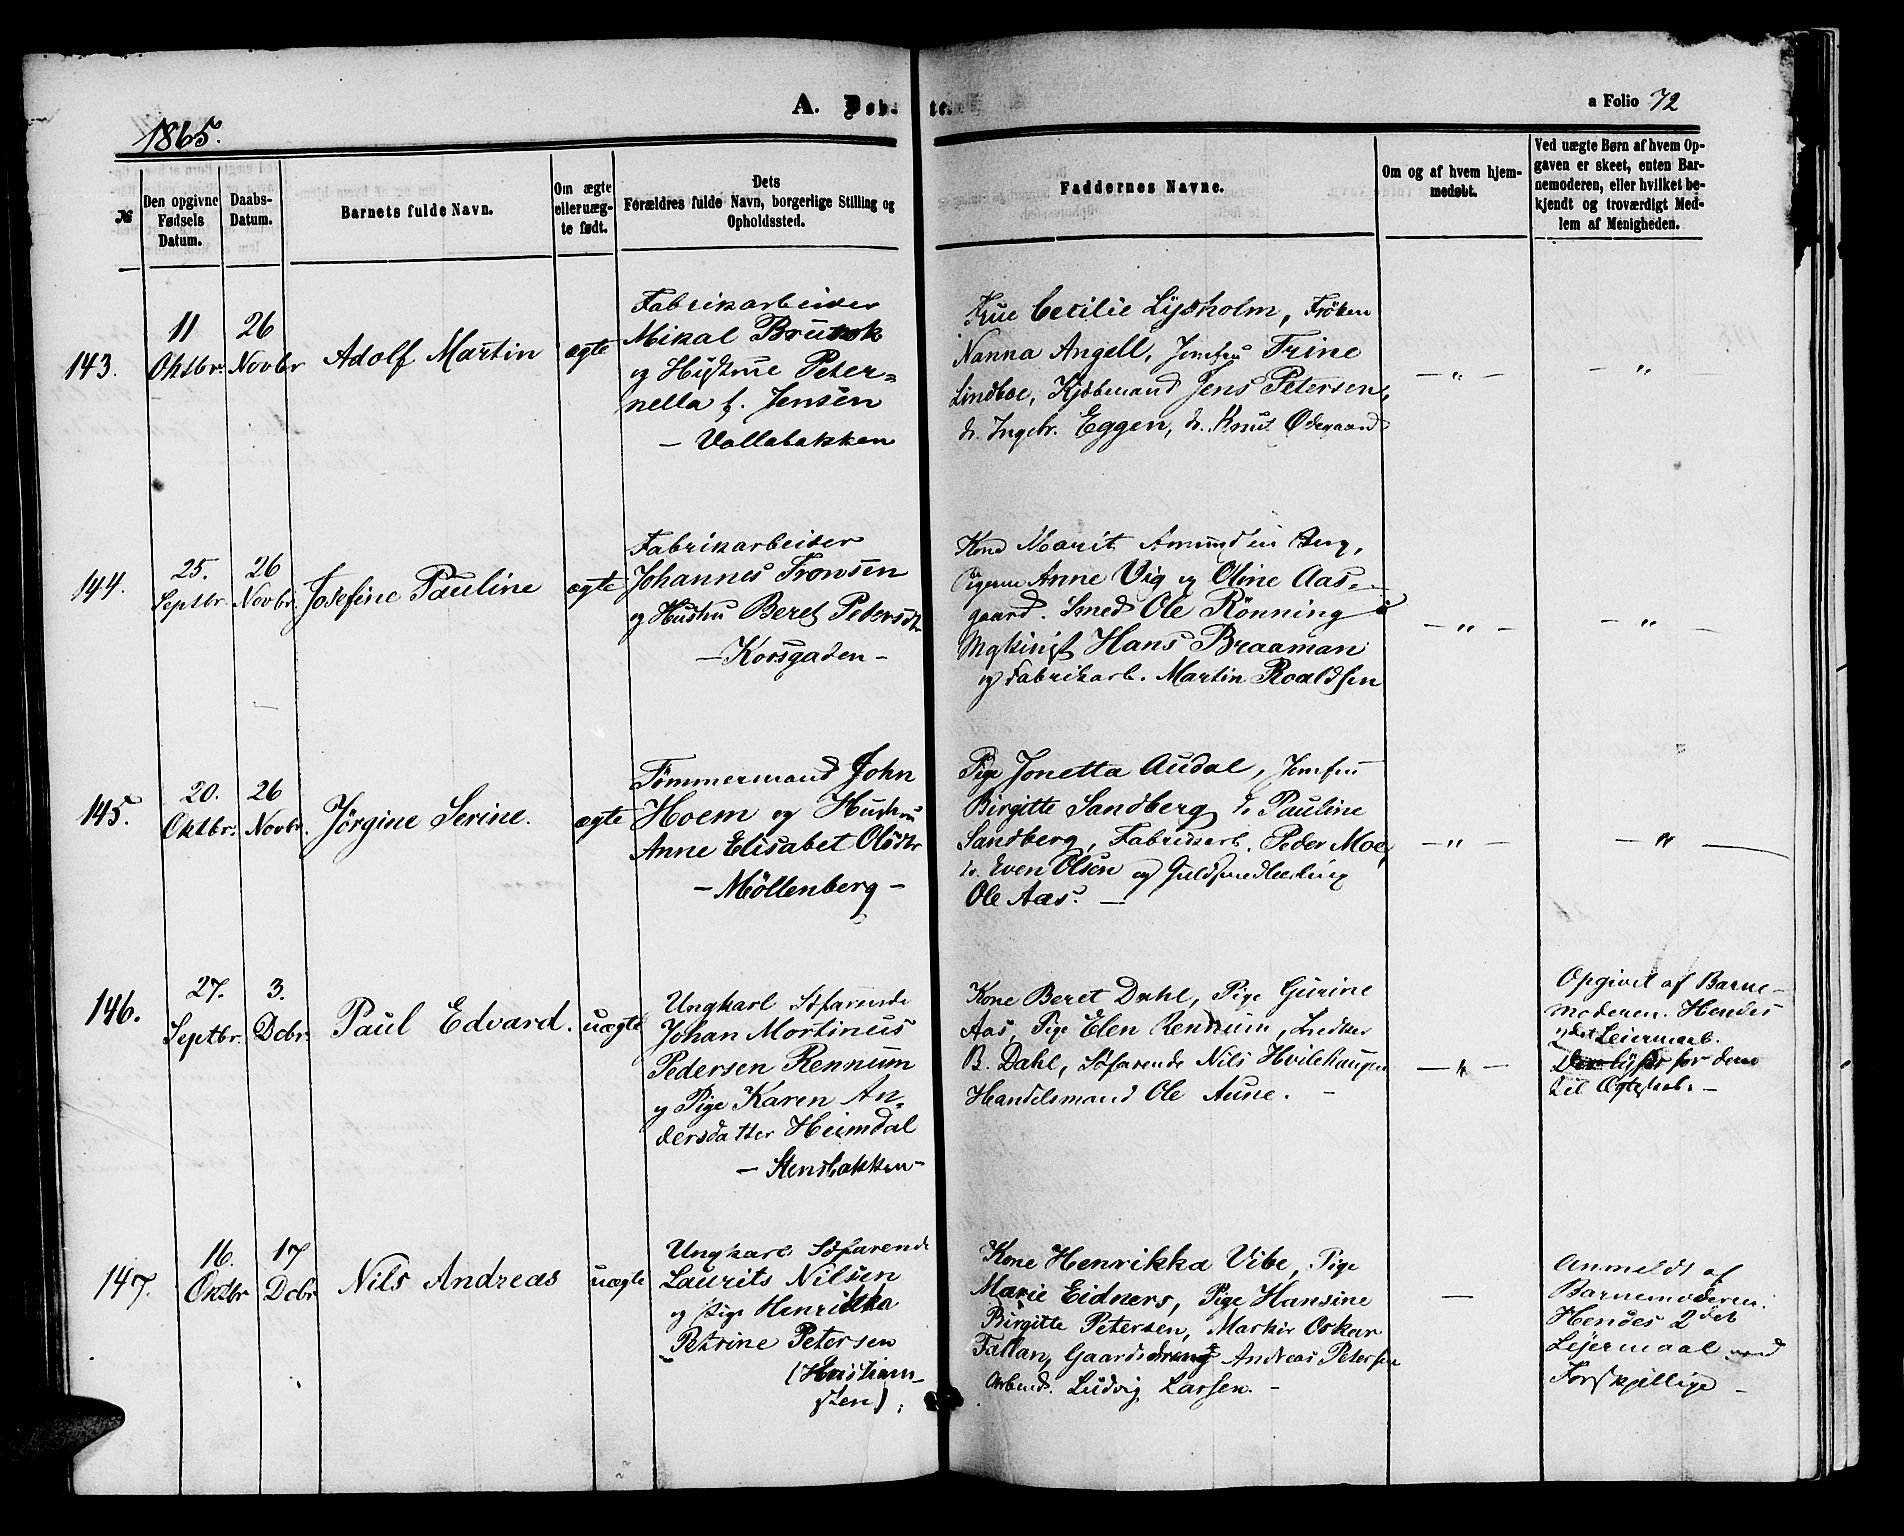 A. Døbte.
a Folio 72
1865.
№
Den opgivne Fødsels Datum.
Daabs-Datum.
Barnets fulde Navn.
Om ægte eller uægte født.
Dets
Forældres fulde Navn, borgerlige Stilling og Opholdssted.
Faddernes Navne.
Om og af hvem hjemmedøbt.
Ved uægte Børn af hvem Opgaven er skeet, enten Barnemoderen, eller hvilket bekjendt og troværdigt Medlem af Menigheden.
143.
11 Oktbr.
26 Novbr
Adolf Martin
ægte
Fabrikarbeider
Mikal
og Hustrue Peter=
nella f. Jensen
- Vollabakken
Frue Cecilie Lysholm, Fröken
Nanna Angell, Jomfru Trine
Lindboe, Kjöbmand Jens Petersen,
do. Ingebr. Eggen, do. Knut Ödegaard
- " -
- " -
144.
25. Septbr.
26 Novbr.
Josefine Pauline
ægte
Fabrikarbeider
Johannes Tronsen
og Hustru Beret Pedersdtr
- Korsgaden -
Kone Marit
Pigerne Anne Vig og Oline Aas-
gaard. Smed Ole Rönning
Hans Braaman
og Fabrikarb. Martin Roaldsen
- " -
- " -
145.
20. Oktbr.
26 Novbr.
Jörgine Serine.
ægte
Tömmermand John
Hoem og Hustru
Anne Elisabet Olsdtr
- Möllenberg -
Pige Jonetta Audal, Jomfru
Birgitte Sandberg do Pauline
Sandberg, Fabrikarb. Peder Moe,
do. Even Olsen og Guldsmedlærling
Ole Aas. -
- " -
- " -
146.
27. Septbr.
3. Dcbr.
Paul Edvard.
uægte
Ungkarl Söfarende
Johan Mortinus
Pedersen Rennum
og Pige Karen An-
dersdatter Heimdal
- Stensbakken -
Kone Beret Dahl, Pige Gurine
Aas, Pige Elen Rennum,
B. Dahl, Söfarende Nils Hvilehaugen
Handelsmand Ole Aune. -
- " -
Opgivet af Barne-
moderen. Hendes
2det Leiermaal.
lyst for dem
til Ægteskab. -
147.
16. Oktbr
17 Dcbr
Nils Andreas
uægte
Ungkarl Söfarende
Laurits Nilsen
og Pige Henrikka
Petrine Petersen
(Kristian-
sten).
Kone Henrikka Vibe, Pige
Marie Eidners, Pige Hansine
Birgitte Petersen, Oskar
Fallan, Gaardsdreng Andreas Petersen
Arbmd. Ludvig Larsen. -
-
Anmeldt af
Barnemoderen.
Hendes 2det
Lejermaal med
Forskjellige -